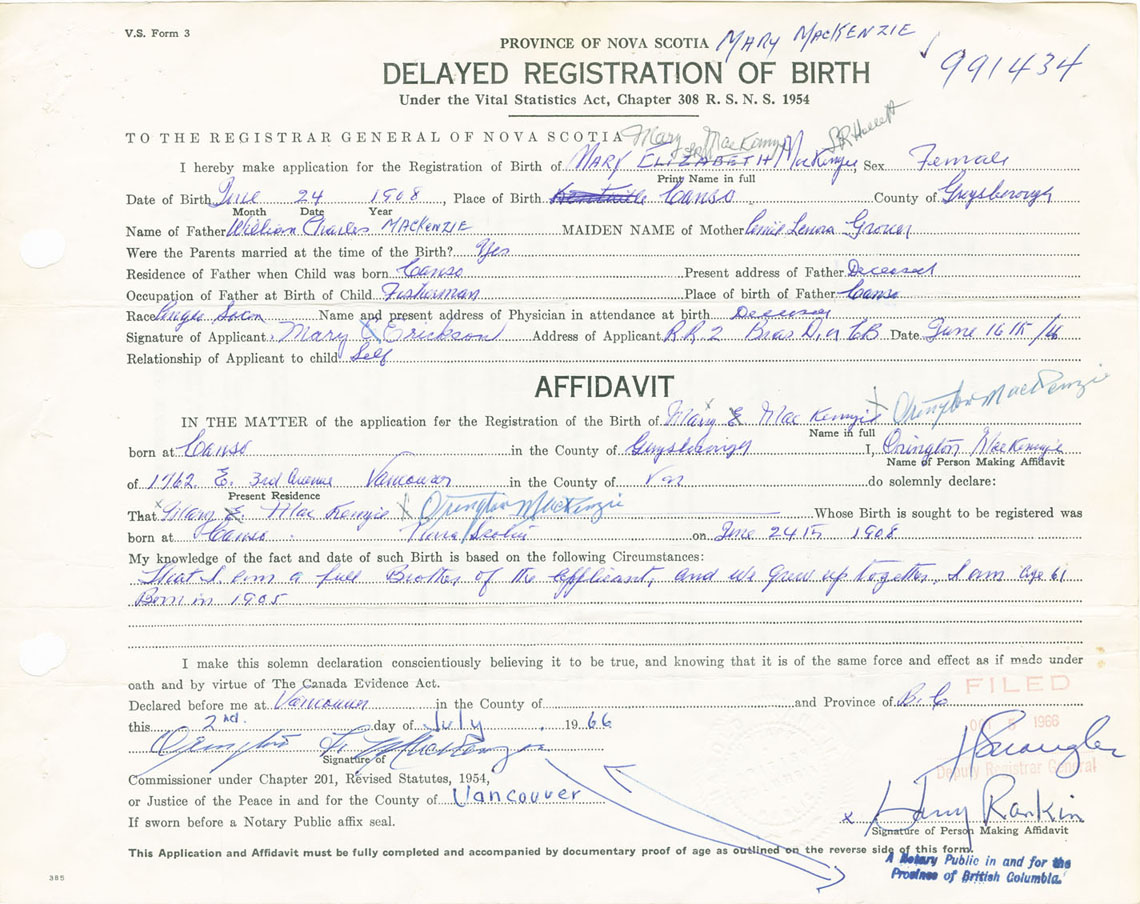 V.S. Form 3
PROVINCE OF NOVA SCOTIA MARY MACKENZIE
991434
DELAYED REGISTRATION OF BIRTH
Under the Vital Statistics Act, Chapter 308 R. S. N. S. 1954
TO THE REGISTRAR GENERAL OF NOVA SCOTIA Mary MacKenzie
I hereby make application for the Registration of Birth of MARY ELIZABETH MacKenzie Sex Female
Print Name in full
Date of Birth June 24 1908, Place of Birth Canso County of Guysborough
Month Date Year
Name of Father William Charles MACKENZIE MAIDEN NAME of Mother Lenora
Were the Parents married at the time of the Birth? Yes
Residence of Father when Child was born Canso Present address of Father Deceased
Occupation of Father at Birth of Child Fisherman Place of birth of Father Canso
Race Name and present address of Physician in attendance at birth Deceased
Signature of Applicant Mary E Erickson Address of Applicant RR2 Bras D, or CB Date June 16 /66
Relationship of Applicant to child Self
AFFIDAVIT
IN THE MATTER of the application for the Registration of the Birth of Mary E. MacKenzie X Orington MacKenzie
Name in full
born at Canso in the County of Guysborough I, Orington MacKenzie
Name of Person Making Affidavit
of 1762 E. 3rd Avenue Vancouver in the County of Van do solemnly declare:
Present Residence
That Mary E. MacKenzie X Orington MacKenzie Whose Birth is sought to be registered was
born at Canso Nova Scotia on June 24 1908
My knowledge of the fact and date of such Birth is based on the following Circumstances:
That I am a full Brother of the applicant, and we grew up together, I am age 61
Born in 1905
I make this solemn declaration conscientiously believing it to be true, and knowing that it is of the same force and effect as if made under
oath and by virtue of The Canada Evidence Act.
Declared before me at Vancouver in the County of and Province of B.C
FILED
this 2nd. day of July, 1966
5 1966
Signature of
Deputy Registrar General
Commissioner under Chapter 201, Revised Statutes, 1954,
or Justice of the Peace in and for the County of Vancouver
x Harry Rankin
If sworn before a Notary Public affix seal.
Signature of Person Making Affidavit
This Application and Affidavit must be fully completed and accompanied by documentary proof of age as outlined on the reverse side of this form.
A Notary Public in and for the
Province of British Columbia.
385